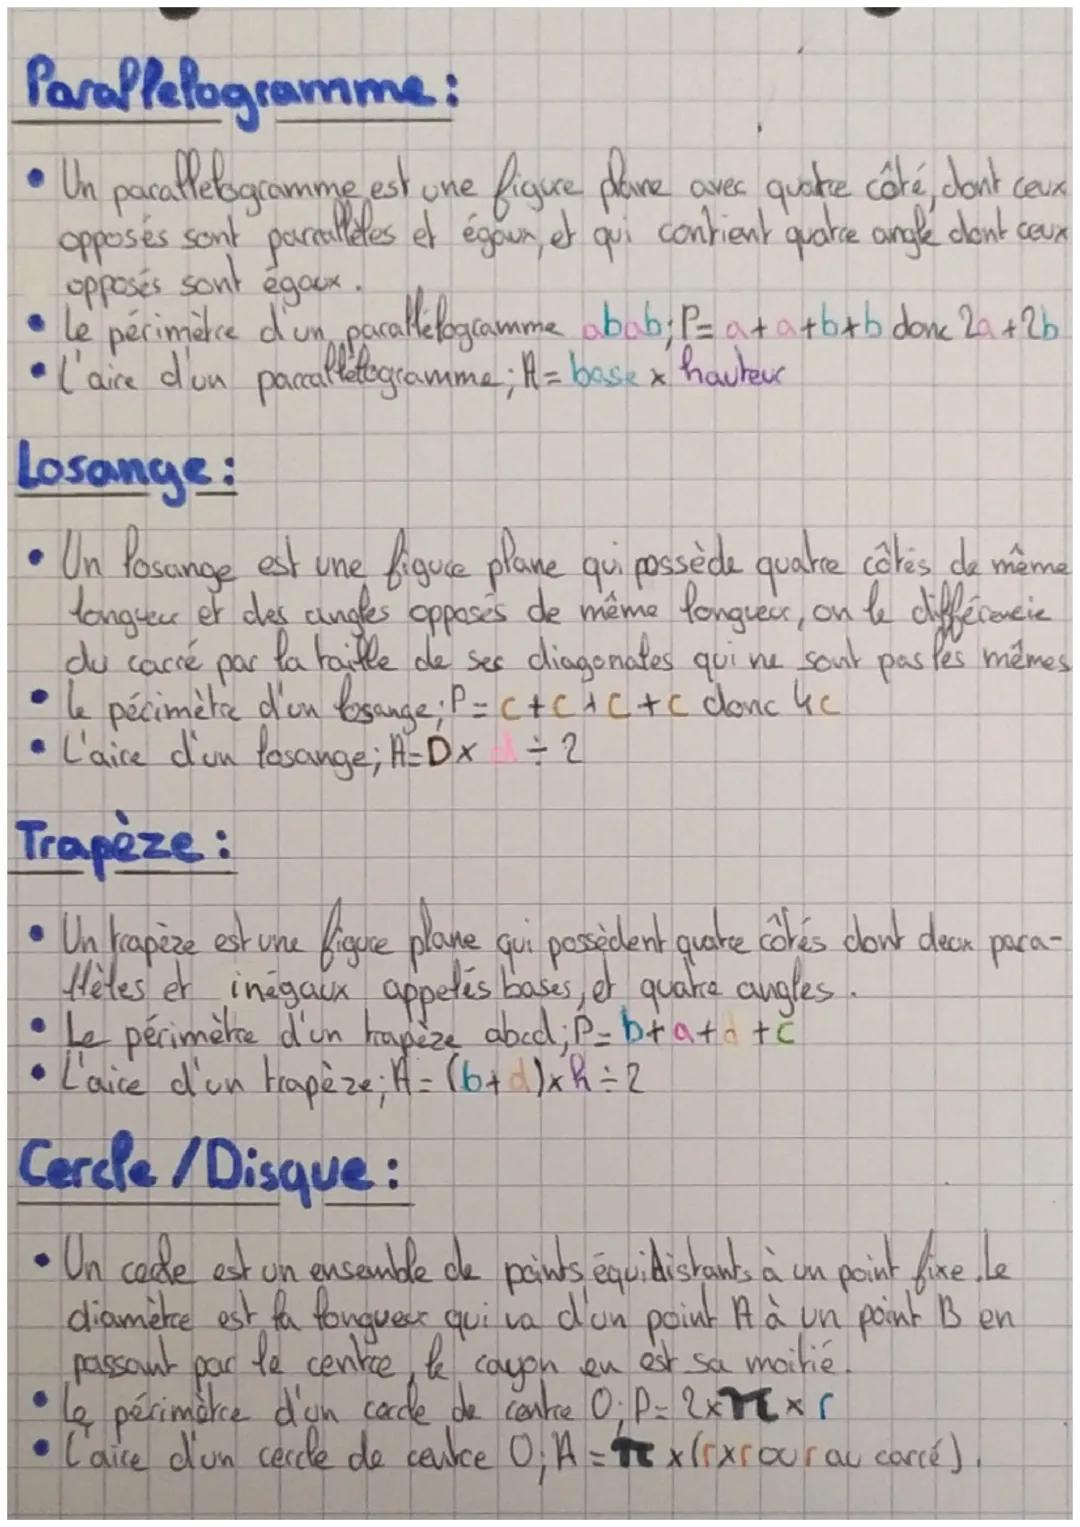 Parallelogramme :
• Un parallelogramme est une figure plane avec quatre côté, dont ceux
opposés sont parrallèles et égaux, et qui contient quatre angle dont ceux
opposés sont égaux.
• Le périmètre d'un parallélogramme abab ; P = a + a + b + b donc 2a + 2b
• L'aire d'un parrallélogramme ; A = base x hauteur
Losange :
• Un losange est une figure plane qui possède quatre côtés de même
longueur et des angles opposés de même longueur, on le différencie
du carré par la taille de ses diagonales qui ne sont pas les mêmes
• Le périmètre d'un losange ; P = c + c + c + c donc 4c
• L'aire d'un losange ; A = D x d ÷ 2
Trapèze :
• Un trapèze est une figure plane qui possèdent quatre côtés dont deux para-
llèles et inégaux appelés bases, et quatre angles.
• Le périmètre d'un trapèze abcd ; P = b + a + d + c
• L'aire d'un trapèze ; A = (b + d) x h ÷ 2
Cercle / Disque :
• Un cercle est un ensemble de points équidistants à un point fixe. Le
diamètre est la longueur qui va d'un point A à un point B en
passant par le centre, le rayon en est sa moitié.
• Le périmètre d'un cercle de centre O ; P = 2 x π x r
• L'aire d'un cercle de centre O ; A = π x (r x r ou r au carré).